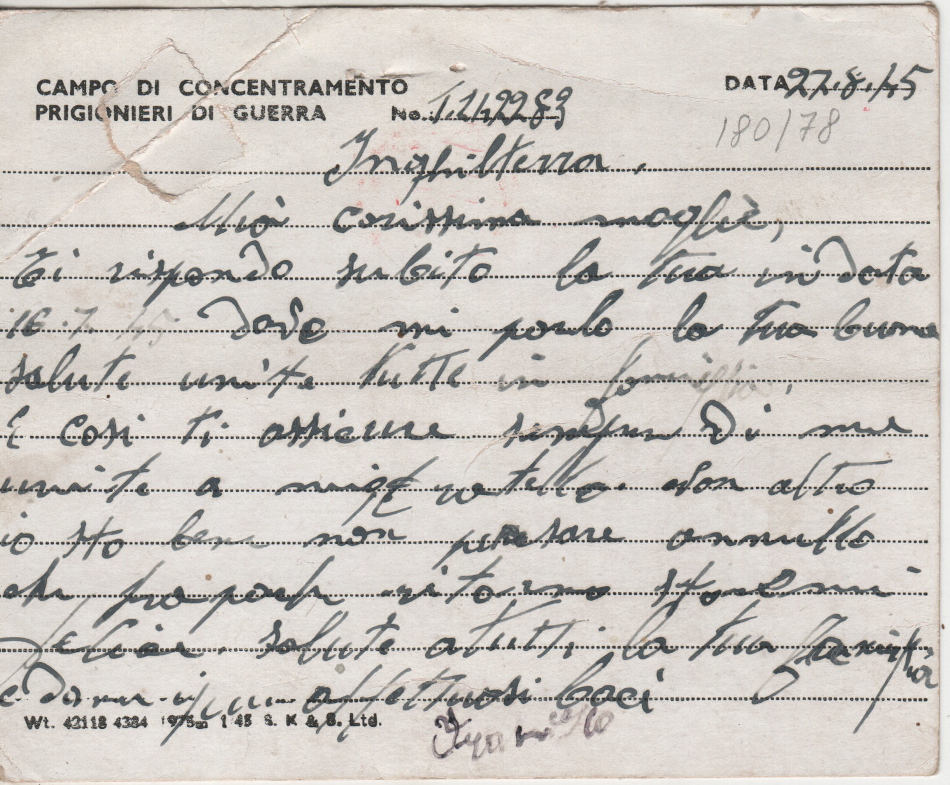 CAMPO DI CONCENTRAMENTO
DATA 27.8.45
PRIGIONIERI DI GUERRA No. 1.142283
180/78
Inghilterra.
Mia carissima moglie,
Ti rispondo subito la tua in data
16.7.45 dove mi parlo la tua buona
salute unite tutte in famiglia.
E cosi ti assicure sempre di me
unite a mio fratello. Non altro
io sto bene non pensare annullo
che fra poch ritorno staremi
felice. salute a tutti la tua famiglia
e da me affettuosi baci
Wt. 42118 4384 1975m 1/45 S. K & S. Ltd.